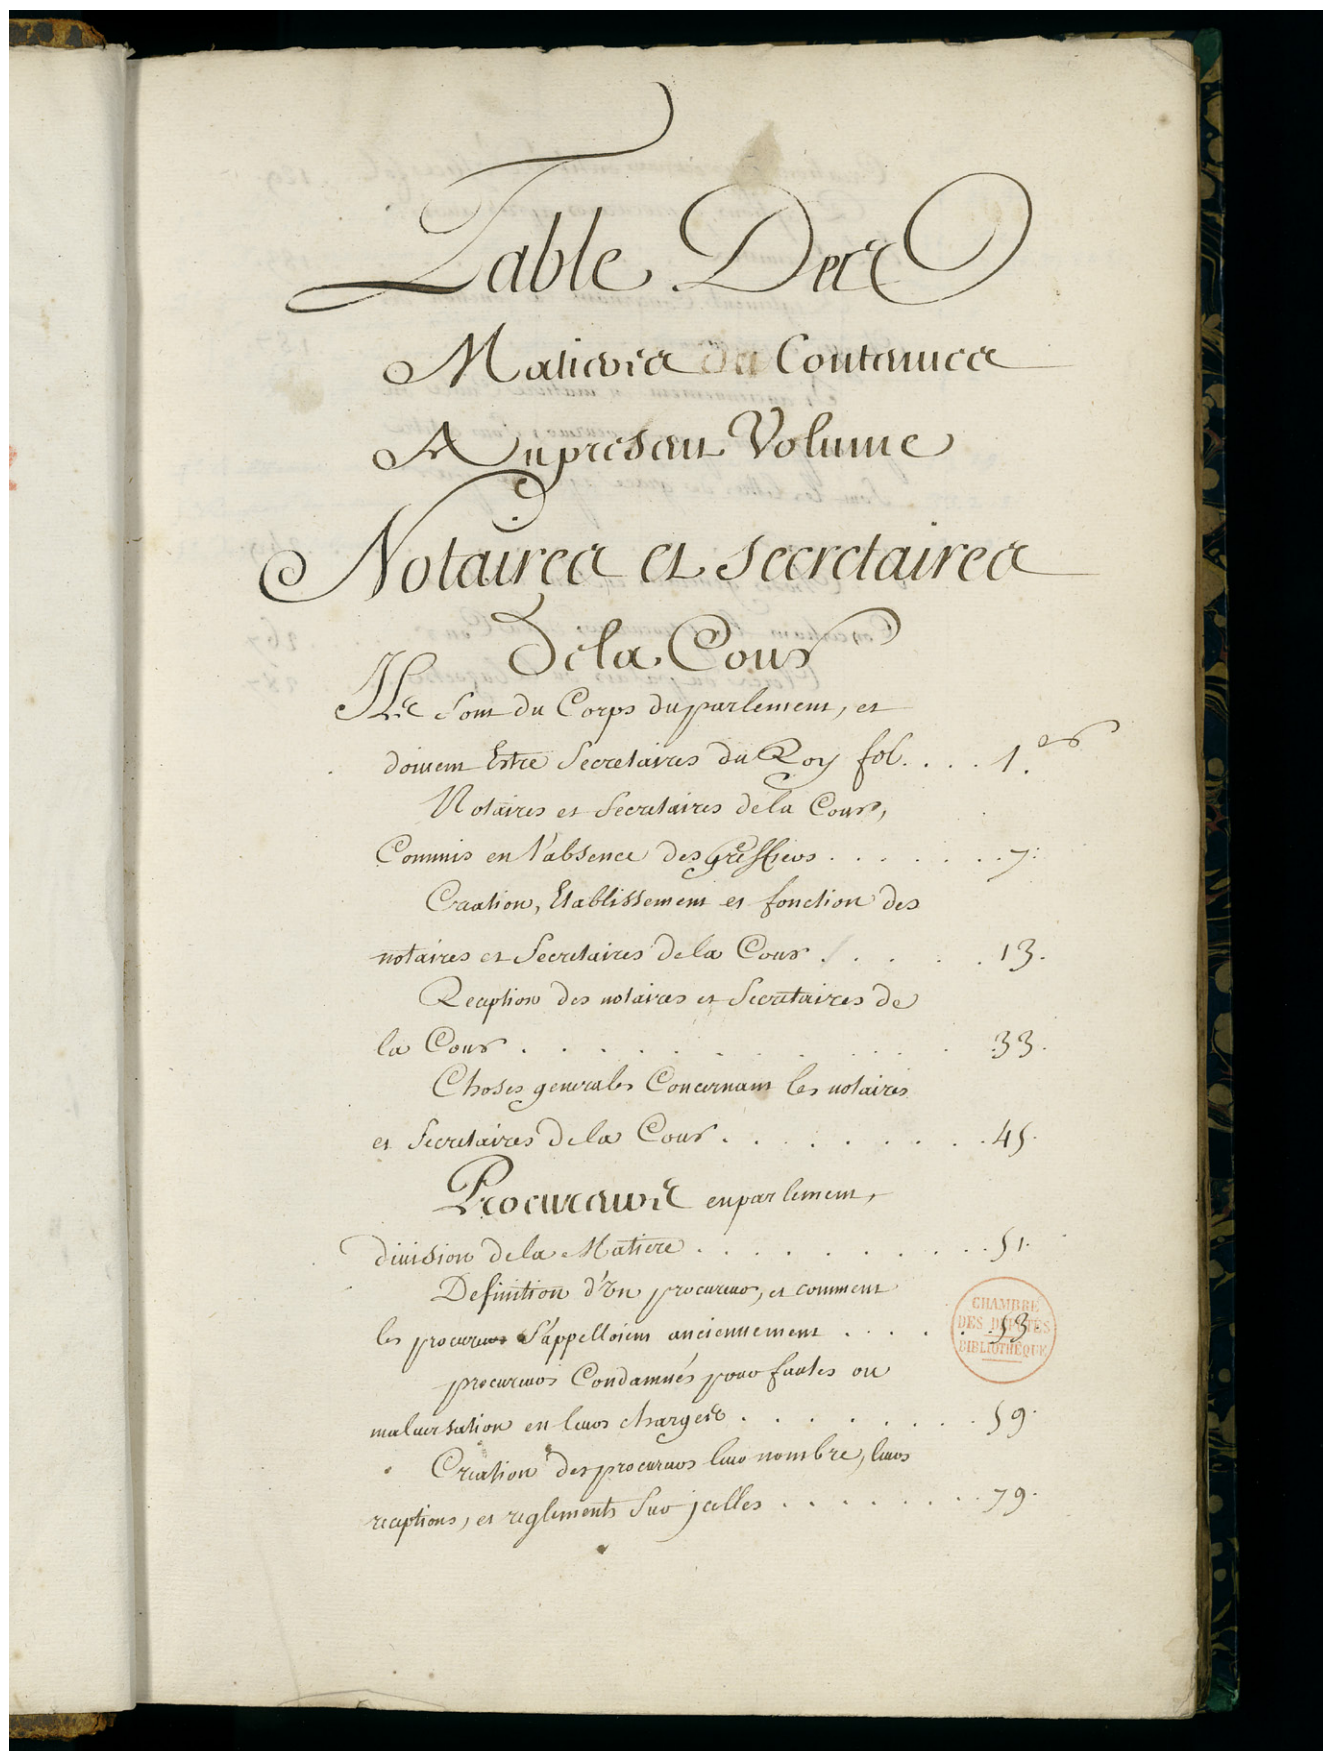 Table Des
Matieres Contenues
Au present Volume
Notaires et Secretaires
De la Cour
Ils sont du Corps du parlement, et
doivent Estre Secretaires du Roy fol. . . . 1.er
Notaires et Secretaires de la Cour,
Commis en l'absence des Greffiers . . . . . . . 7.
Creation, Etablissement et fonction des
notaires et Secretaires de la Cour . . . . . 13.
Reception des notaires et Secretaires de
la Cour . . . . . . . . . . . . 33.
Choses generales Concernant les notaires
et Secretaires de la Cour . . . . . . . . 45.
Procureurs en parlement,
division de la Matiere . . . . . . . . . 51.
Definition d'Un procureur, et comment
les procureurs s'appelloient anciennement . . . . . 53.
procureurs Condamnés pour fautes ou
malversation en leurs charges . . . . . . . 59.
Creation des procureurs leur nombre, leurs
receptions, et reglements Sur jcelles . . . . . . . 79.
CHAMBRE
DES DEPUTES
BIBLIOTHÈQUE